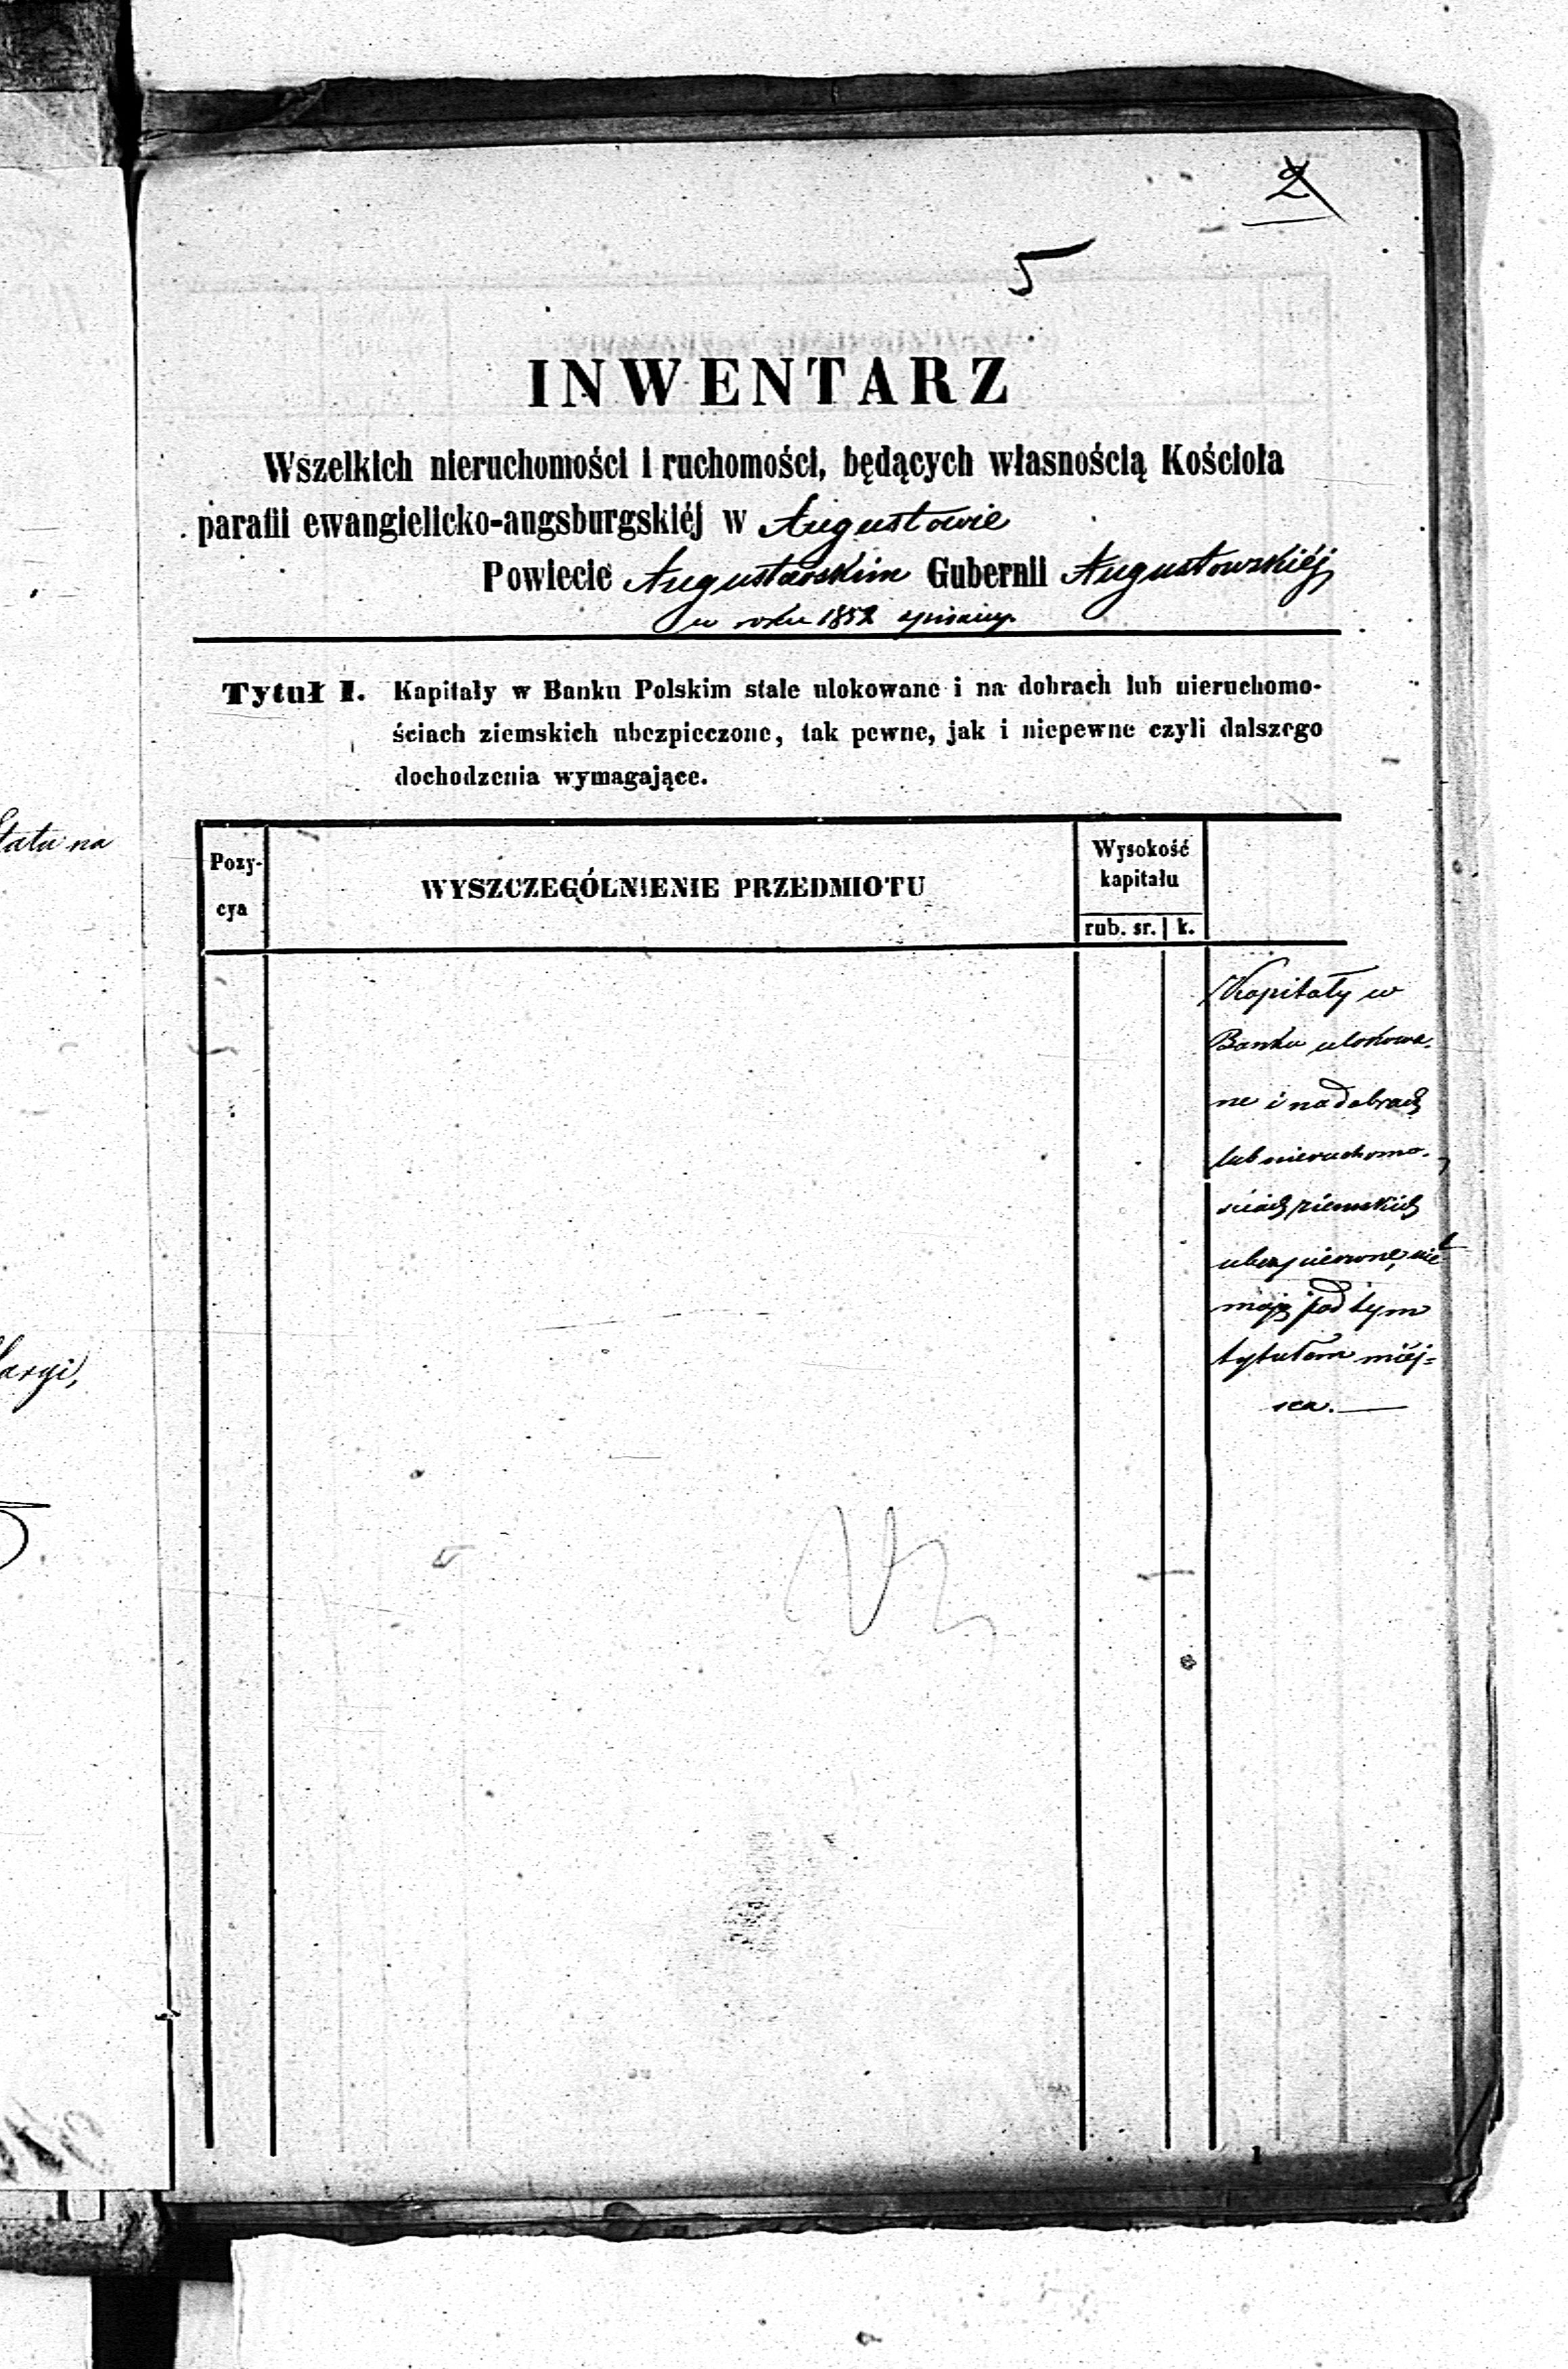 2
5
INWENTARZ
Wszelkich nieruchomości i ruchomości, będących własnością Kościoła
parafii ewangielicko-augsburgskiéj w Augustowie
Powiecie Augustowskim Gubernii Augustowskiéj
w roku 1852 spisany.
Tytuł I. Kapitały w Banku Polskim stale ulokowane i na dobrach lub nieruchomo-
ściach ziemskich ubezpieczone, tak pewne, jak i niepewne czyli dalszego
dochodzenia wymagające.
Pozy-
cya
WYSZCZEGÓLNIENIE PRZEDMIOTU
Wysokość
kapitału
rub. sr. k.
Kapitały w
Banku ulokowa-
ne i na dobrach
lub nieruchomo-
ściach ziemskich
ubezpieczone, nie
mają pod tym
tytułem miéj-
sca.
1